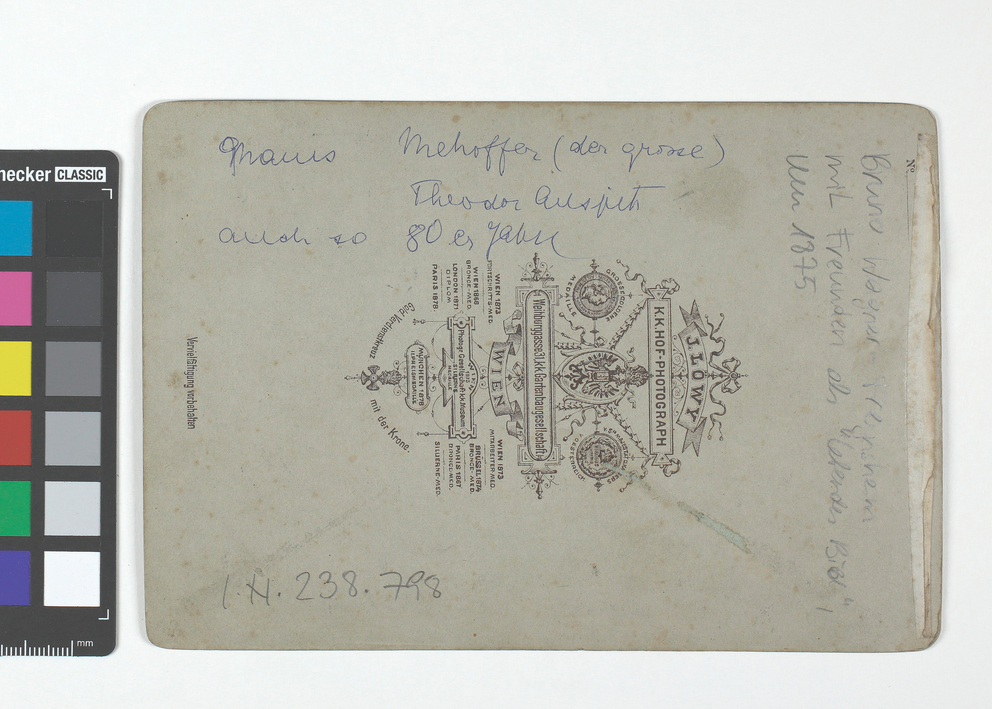 necker CLASSIC
mm
Mehoffer (der grosse)
Theodor Auspitz
auch so 80 er Jahre
I.N. 238.798
No
mit Freunden als
um 1875
J. LÖWY
K.K. HOF-PHOTOGRAPH
GROSSE GOLDENE
MEDAILLE
Weihburggasse 31, k.k. Gartenbaugesellschaft
WIEN
WIEN 1873
FORTSCHRITTS-MED.
WIEN 1873
MITARBEITER-MED.
BRONCE-MED.
BRÜSSEL 1874
BRONCE-MED.
LONDON 1871
DIPLOM
PARIS 1867
BRONCE-MED.
PARIS 1878
SILBERNE-MED.
Photogr. Gesellschaft
MÜNCHEN 1876
Gold. Verdienstkreuz
mit der Krone.
Vervielfältigung vorbehalten